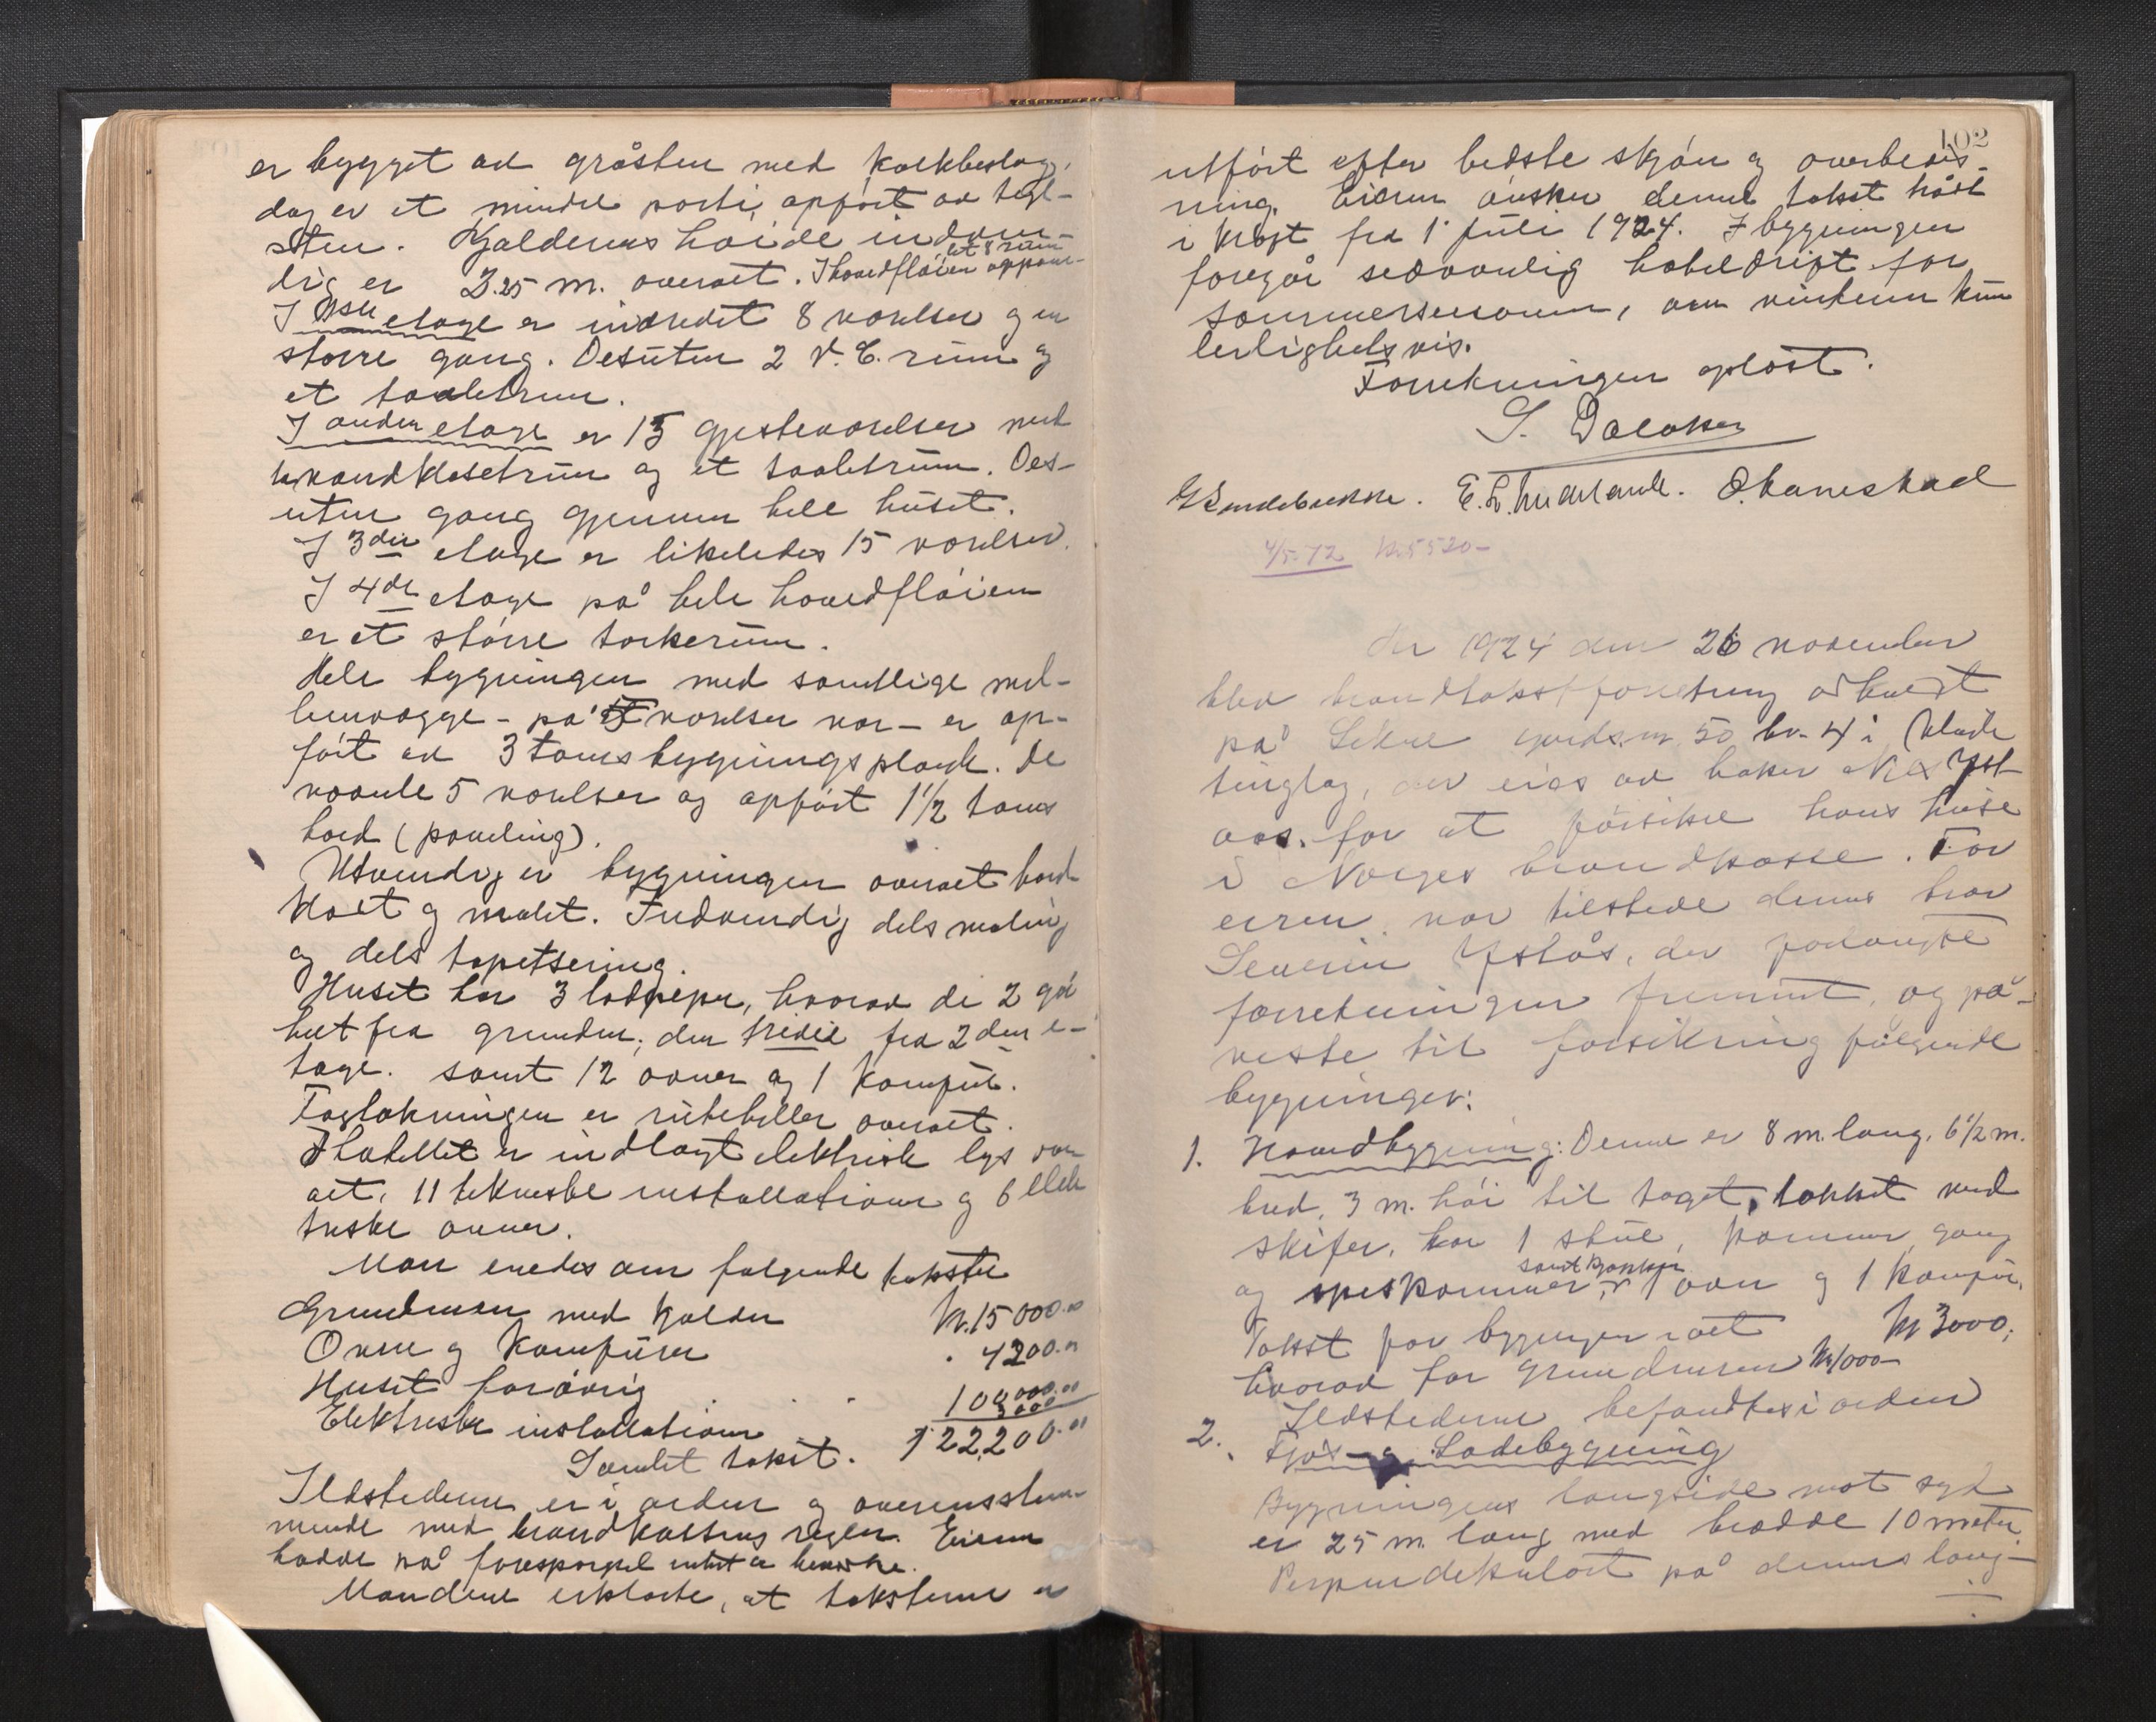 er bygget av gråsten med kalkbeslag,
dog er et mindre parti opført av tegl-
sten. Kjelderens høide indven-
dig er 2.25 m. overalt. I hovedfløien
I 1ste etage er indredet 8 værelser og en
større gang. Desuten 2 V.C. rum og
et toaletrum.
I anden etage er 15 gjesteværelser med
vandklosetrum og et toaletrum. Des-
uten gang gjennem hele huset.
I 3die etage er likeledes 15 værelser.
I 4de etage på hele hovedfløien
er et større tørkerum.
Hele bygningen med samtlige mel-
lemvægge - på 5 værelser nær - er op-
ført av 3 toms bygningsplank. De
nævnte 5 værelser og opført 1 1/2 toms
bord (paneling).
Utvendig er bygningen overalt bord-
klædt og malet. Indvendig dels maling
og dels tapetsering.
Huset har 3 lodpeper, hvorav de 2 går
helt fra grunden, den tredie fra 2den e-
tage. samt 12 ovner og 1 komfur.
Taglækningen er rutebeller overalt.
I hotellet er indlagt elektrisk lys over
alt, 11 tekniske installationer og 6 elek
triske ovner.
Man enedes om følgende takster
Grundmur med kjelder Kr. 15 000.00
Ovne og Komfurer 4200.00
Huset forøvrig 100 000.00
Elektriske installationer 3000
Samlet takst. 122,200.00
Ildstederne er i orden og overensstem-
mende med brandkassens regler. Eieren
hadde på forespørgsel intet at bemærke.
Mændene erklærte, at taksterne er
102
utført efter bedste skjøn og overbevis-
ning. Eieren ønsker denne takst trådt
i kraft fra 1 juli 1924. I bygningen
foregår sedvanlig hoteldrift for
sommersesonen, om vinteren kun
leilighetsvis.
Forretningen opløst.
4/5-72 Kr. 5520-
År 1924 den 26 november
blev brandtakstforretning avholdt
på gårdsnr. 50 br. 4 i
tinglag, der eies av baker Yst-
aas, for at forsikre hans huse
i Norges brandkasse. For
eieren var tilstede dennes bror
Severin Ystås, der forlangte
forretningen fremmet, og på-
viste til forsikring følgende
bygninger:
1. Hovedbygning: Denne er 8 m. lang, 6 1/2 m.
bred, 3 m. høi til taget, tækket med
skifer, har 1 stue, kammer, gang
og spiskammer, 1 ovn og 1 komfur.
Takst for bygningen i alt Kr 3000,
hvorav for Grundmuren Kr 1000-
Ildstederne befandtes i orden
2. Fjøs- og Ladebygning
Bygningens langside mot syd
er 25 m. lang med bredde 10 meter.
Perpendikulært på dennes lang-